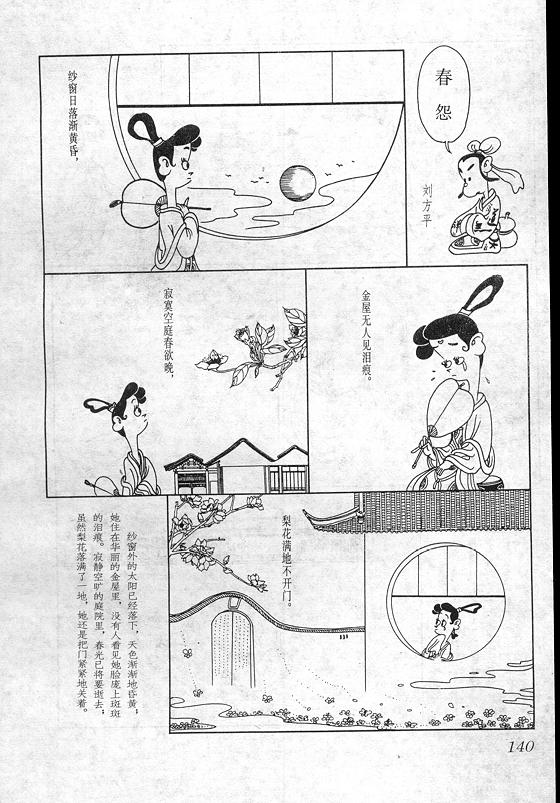 春怨
刘方平
纱窗日落渐黄昏，
金屋无人见泪痕。
寂寞空庭春欲晚，
梨花满地不开门。
纱窗外的太阳已经落下，天色渐渐地昏黄，
她住在华丽的金屋里，没有人看见她脸庞上斑斑
的泪痕。寂静空旷的庭院里，春光已将要逝去；
虽然梨花落满了一地，她还是把门紧紧地关着。
140